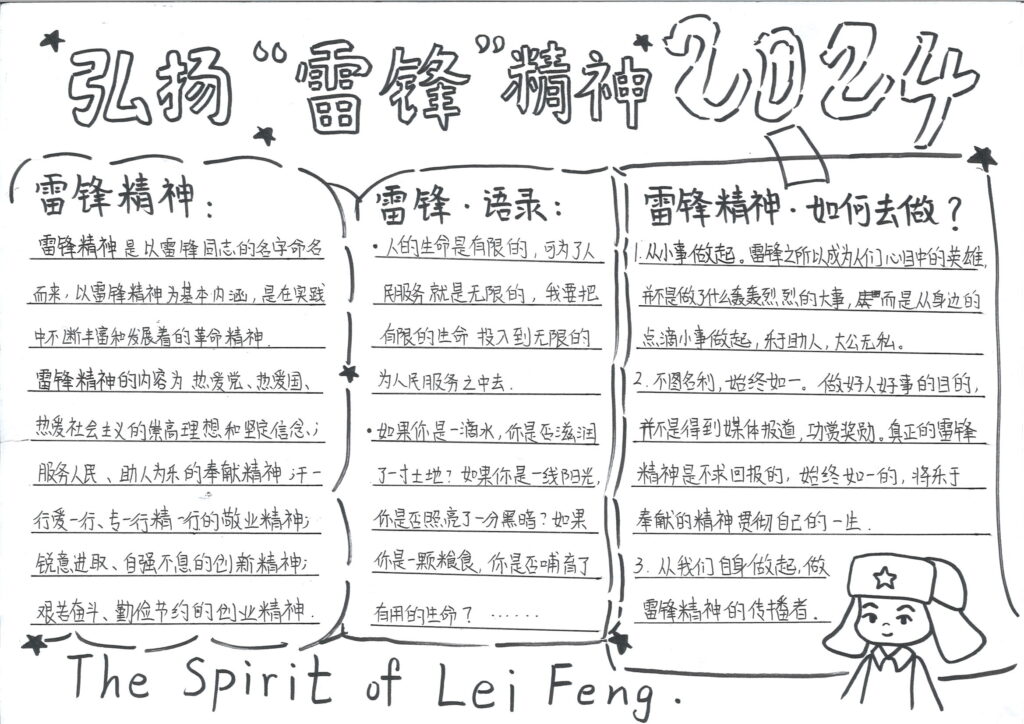 弘扬“雷锋”精神2024
雷锋精神：
雷锋精神是以雷锋同志的名字命名
而来，以雷锋精神为基本内涵，是在实践
中不断丰富和发展着的革命精神．
雷锋精神的内容为热爱党、热爱国、
热爱社会主义的崇高理想和坚定信念；
服务人民、助人为乐的奉献精神；干一
行爱一行、专一行精一行的敬业精神；
锐意进取、自强不息的创新精神；
艰苦奋斗、勤俭节约的创业精神．
雷锋·语录：
·人的生命是有限的，可为了人
民服务就是无限的，我要把
有限的生命投入到无限的
为人民服务之中去．
·如果你是一滴水，你是否滋润
了一寸土地？如果你是一线阳光，
你是否照亮了一分黑暗？如果
你是一颗粮食，你是否哺育了
有用的生命？……
雷锋精神·如何去做？
1.从小事做起。雷锋之所以成为人们心目中的英雄，
并不是做了什么轰轰烈烈的大事，而是从身边的
点滴小事做起，乐于助人，大公无私。
2.不图名利，始终如一。做好人好事的目的，
并不是得到媒体报道，功赏奖励。真正的雷锋
精神是不求回报的，始终如一的，将乐于
奉献的精神贯彻自己的一生．
3.从我们自身做起，做
雷锋精神的传播者．
The Spirit of Lei Feng.